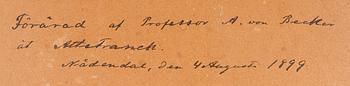 Förärad af Professor A. von Becker
åt
Nådendal, den 4 August 1899